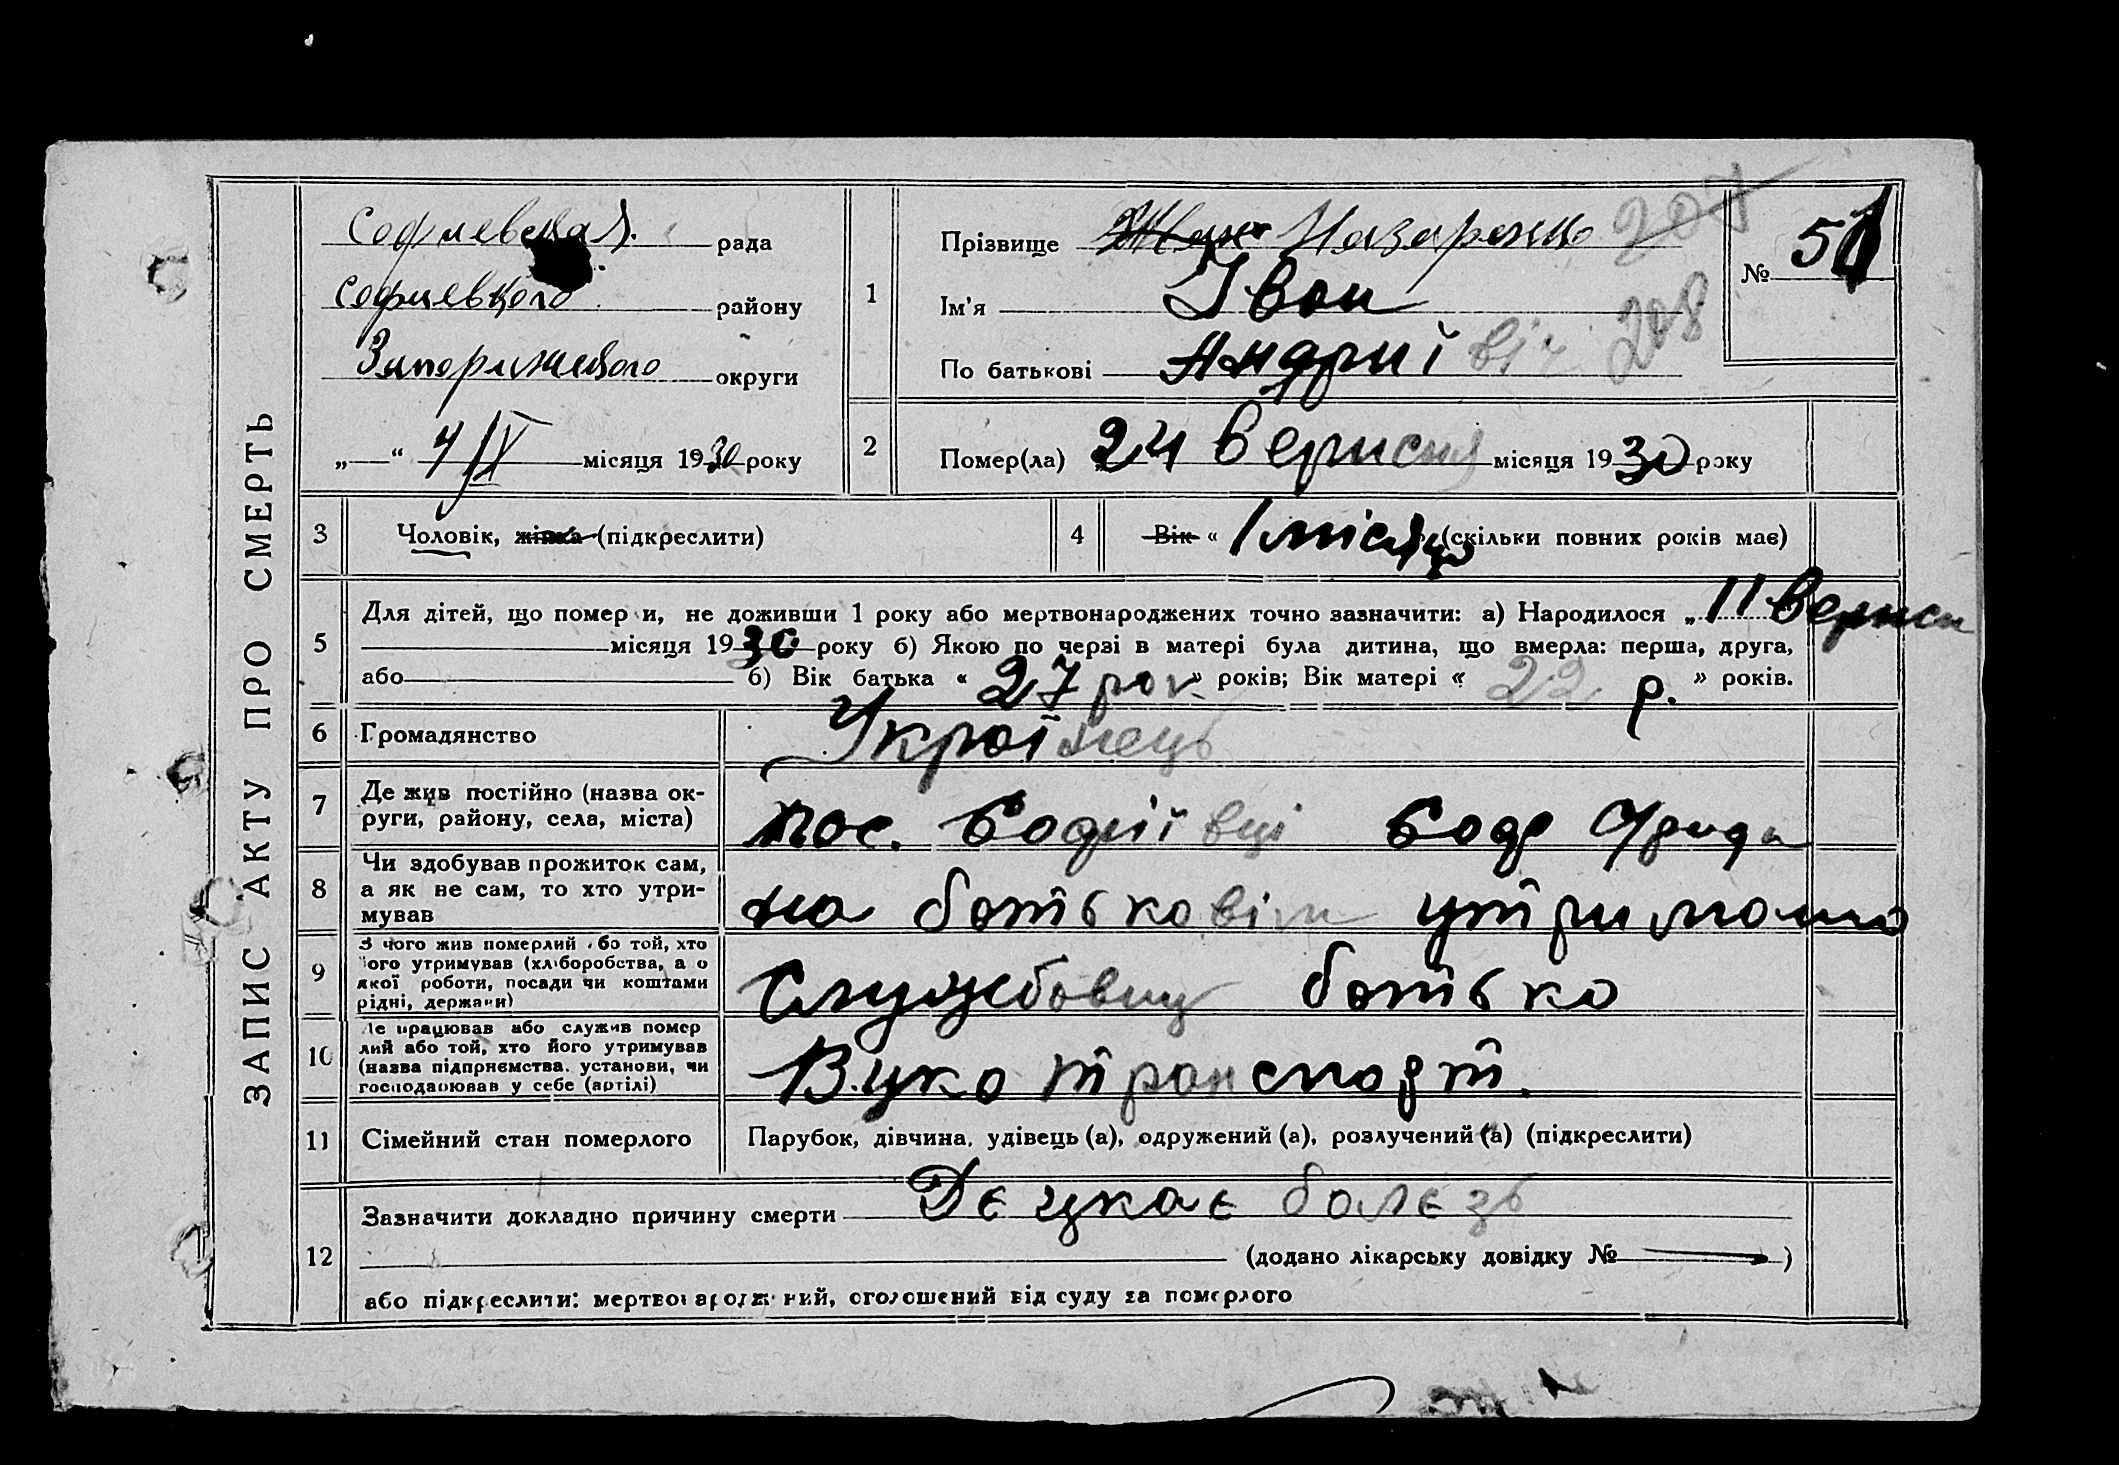 ЗАПИС АКТУ ПРО СМЕРТЬ
Софиевская рада
Софиевкого району
Запорижецкого округи
„—“ 4/IX місяця 1930 року
1
Прізвище Назаренко
Ім'я Іван
По батькові Андриівіч
207
208
№ 51
2
Помер(ла) „24 Верисня місяця 1930 року
3 Чоловік, жінка (підкреслити)
4 Вік « 1 місяць (скільки повних років має)
5 Для дітей, що померли, не доживши 1 року або мертвонароджених точно зазначити: а) Народилося „11 Верисн
місяця 1930 року б) Якою по черзі в матері була дитина, що вмерла: перша, друга,
або б) Вік батька « 27 рок » років; Вік матері « 22 р. » років.
6 Громадянство Украінець
7 Де жив постійно (назва округи, району, села, міста) пос. Софіівці Соф
8 Чи здобував прожиток сам, а як не сам, то хто утримував
на батьковім утримано
9 З чого жив померлий або той, хто його утримував (хліборобства, а о якої роботи, посади чи коштами рідні, держави)
Службовец батько
10 Де працював або служив померлий або той, хто його утримував (назва підприємства, установи, чи господарював у себе (артілі)
Вуко транспорт.
11 Сімейний стан померлого Парубок, дівчина, удівець (а), одружений (а), розлучений (а) (підкреслити)
12 Зазначити докладно причину смерти Децкає болєзь
(додано лікарську довідку № —)
або підкреслити: мертвонароджений, оголошений від суду за померлого